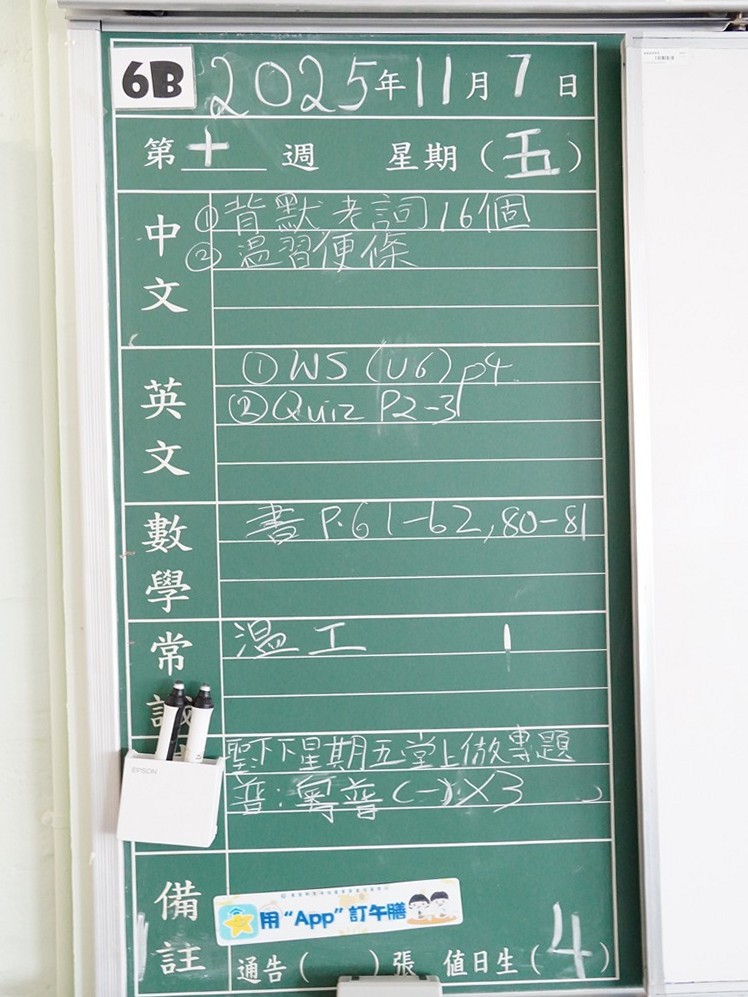 6B 2025年11月7日
第十週 星期(五)
中文
①背默考詞16個
②溫習便條
英文
①WS (U6) p4
②Quiz P2-3
數學
書 P.61-62, 80-81
常
溫工
聖:下星期五堂上做專題
普:粵普(一)×3
EPSON
備註
用“App”訂午膳
通告( )張 值日生(4)